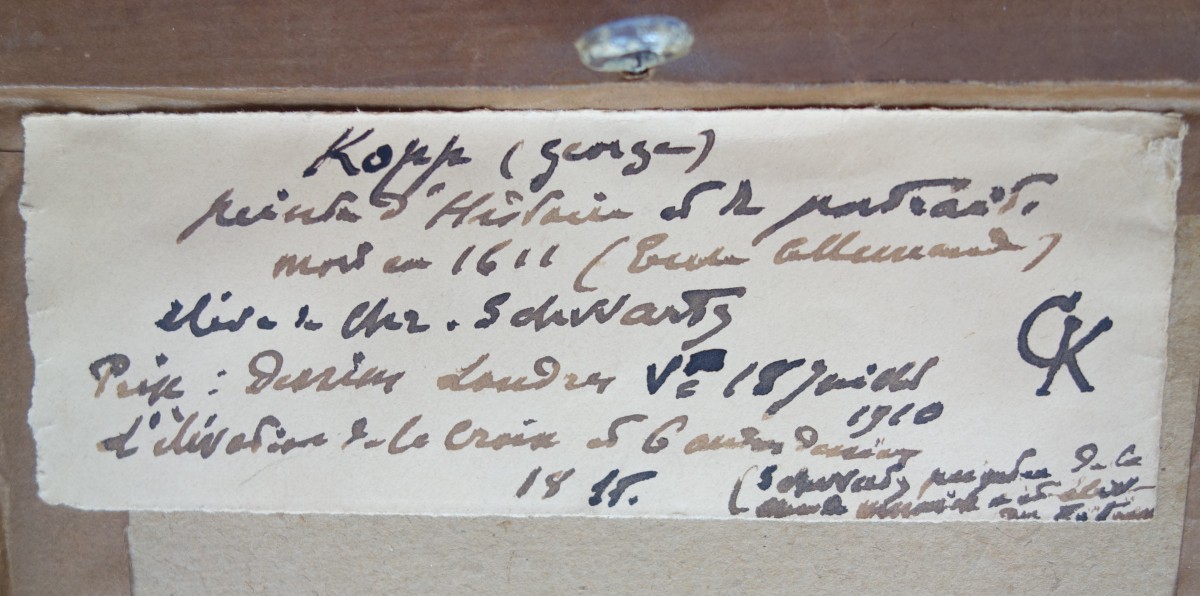 Kopp (george)
peintre d'Histoire et de portraits.
mort en 1611 (Ecole Allemande)
élève de Chr. Schwartz
GK
Prix : Dessins Londres Vte 18 Juillet
1910
L'élévation de la Croix et 6 autres dessins
18
(Schwartz peintre de la